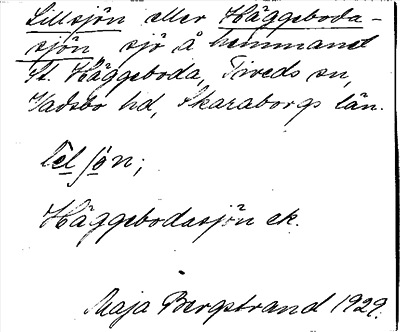 Lillsjön eller Häggeboda-
sjön sjö å hemmanet
St. Häggeboda, Tiveds sn,
Vadsbo hd, Skaraborgs län.
lel sön;
Häggebodasjön ek.
Maja Bergstrand 1929.